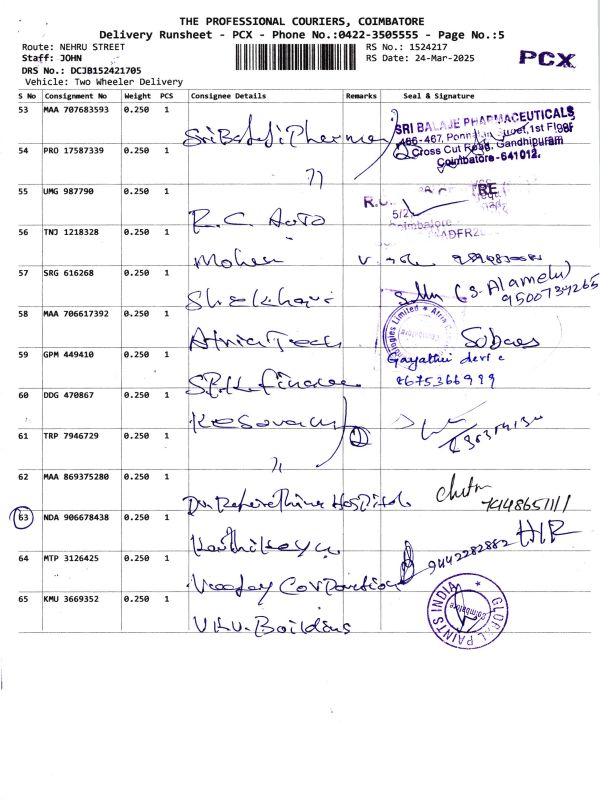 THE PROFESSIONAL COURIERS, COIMBATORE
Delivery Runsheet - PCX - Phone No.:0422-3505555 - Page No.:5
Route: NEHRU STREET RS No.: 1524217
Staff: JOHN RS Date: 24-Mar-2025 PCX
DRS No.: DCJB152421705
Vehicle: Two Wheeler Delivery
S No Consignment No Weight PCS Consignee Details Remarks Seal & Signature
53 MAA 707683593 0.250 1
Sri Balaji Pharmacy SRI BALAJE PHARMACEUTICALS
1st Floor
Cross Cut Road, Gandhipuram
Coimbatore - 641012.
54 PRO 17587339 0.250 1
"
55 UMG 987790 0.250 1
R.C. Auto
5/2
Coimbatore
56 TNJ 1218328 0.250 1
Mohan
57 SRG 616268 0.250 1
Shekhar (S. Alamelu)
9500734265
58 MAA 706617392 0.250 1
Atria Tech
59 GPM 449410 0.250 1
Gayathri devi
8675366999
finance
60 DDG 470867 0.250 1
Kesavan
61 TRP 7946729 0.250 1
"
62 MAA 869375280 0.250 1
Hospital
63 NDA 906678438 0.250 1
Karthikeyan 9442282882
64 MTP 3126425 0.250 1
Corporation
65 KMU 3669352 0.250 1
V.K.V. Buildings GLOBAL PAINTS INDIA
Coimbatore